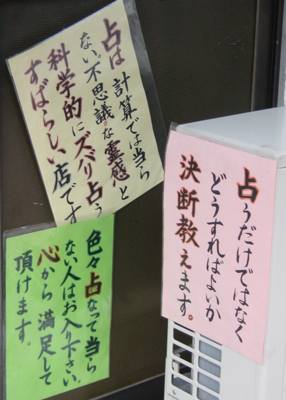 占は計算では当ら
ない不思議な霊感と
科学的にズバリ占う
すばらしい店です
占うだけではなく
どうすればよいか
決断教えます。
色々占なって当ら
ない人はお入り下さい。
心から満足して
頂けます。